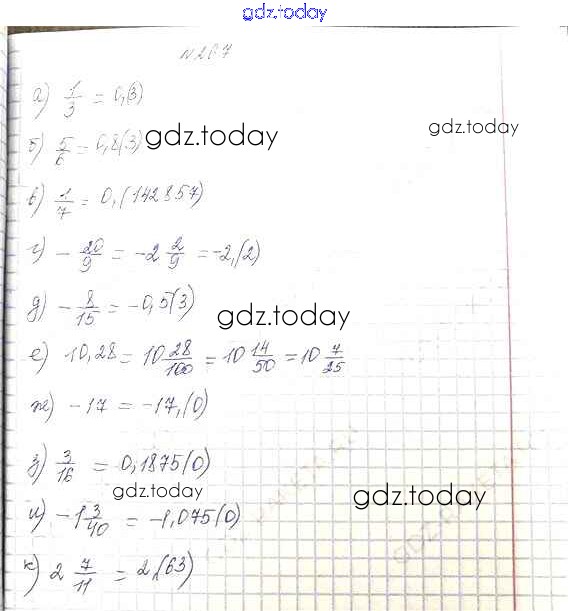 gdz.today
№267
а) 1/3 = 0,(3)
б) 5/6 = 0,8(3)
gdz.today
gdz.today
в) 1/7 = 0,(142857)
г) - 20/9 = -2 2/9 = -2,(2)
д) - 8/15 = -0,5(3)
gdz.today
е) 10,28 = 10 28/100 = 10 14/50 = 10 7/25
ж) -17 = -17,(0)
з) 3/16 = 0,1875(0)
gdz.today
gdz.today
и) -1 3/40 = -1,075(0)
к) 2 7/11 = 2,(63)